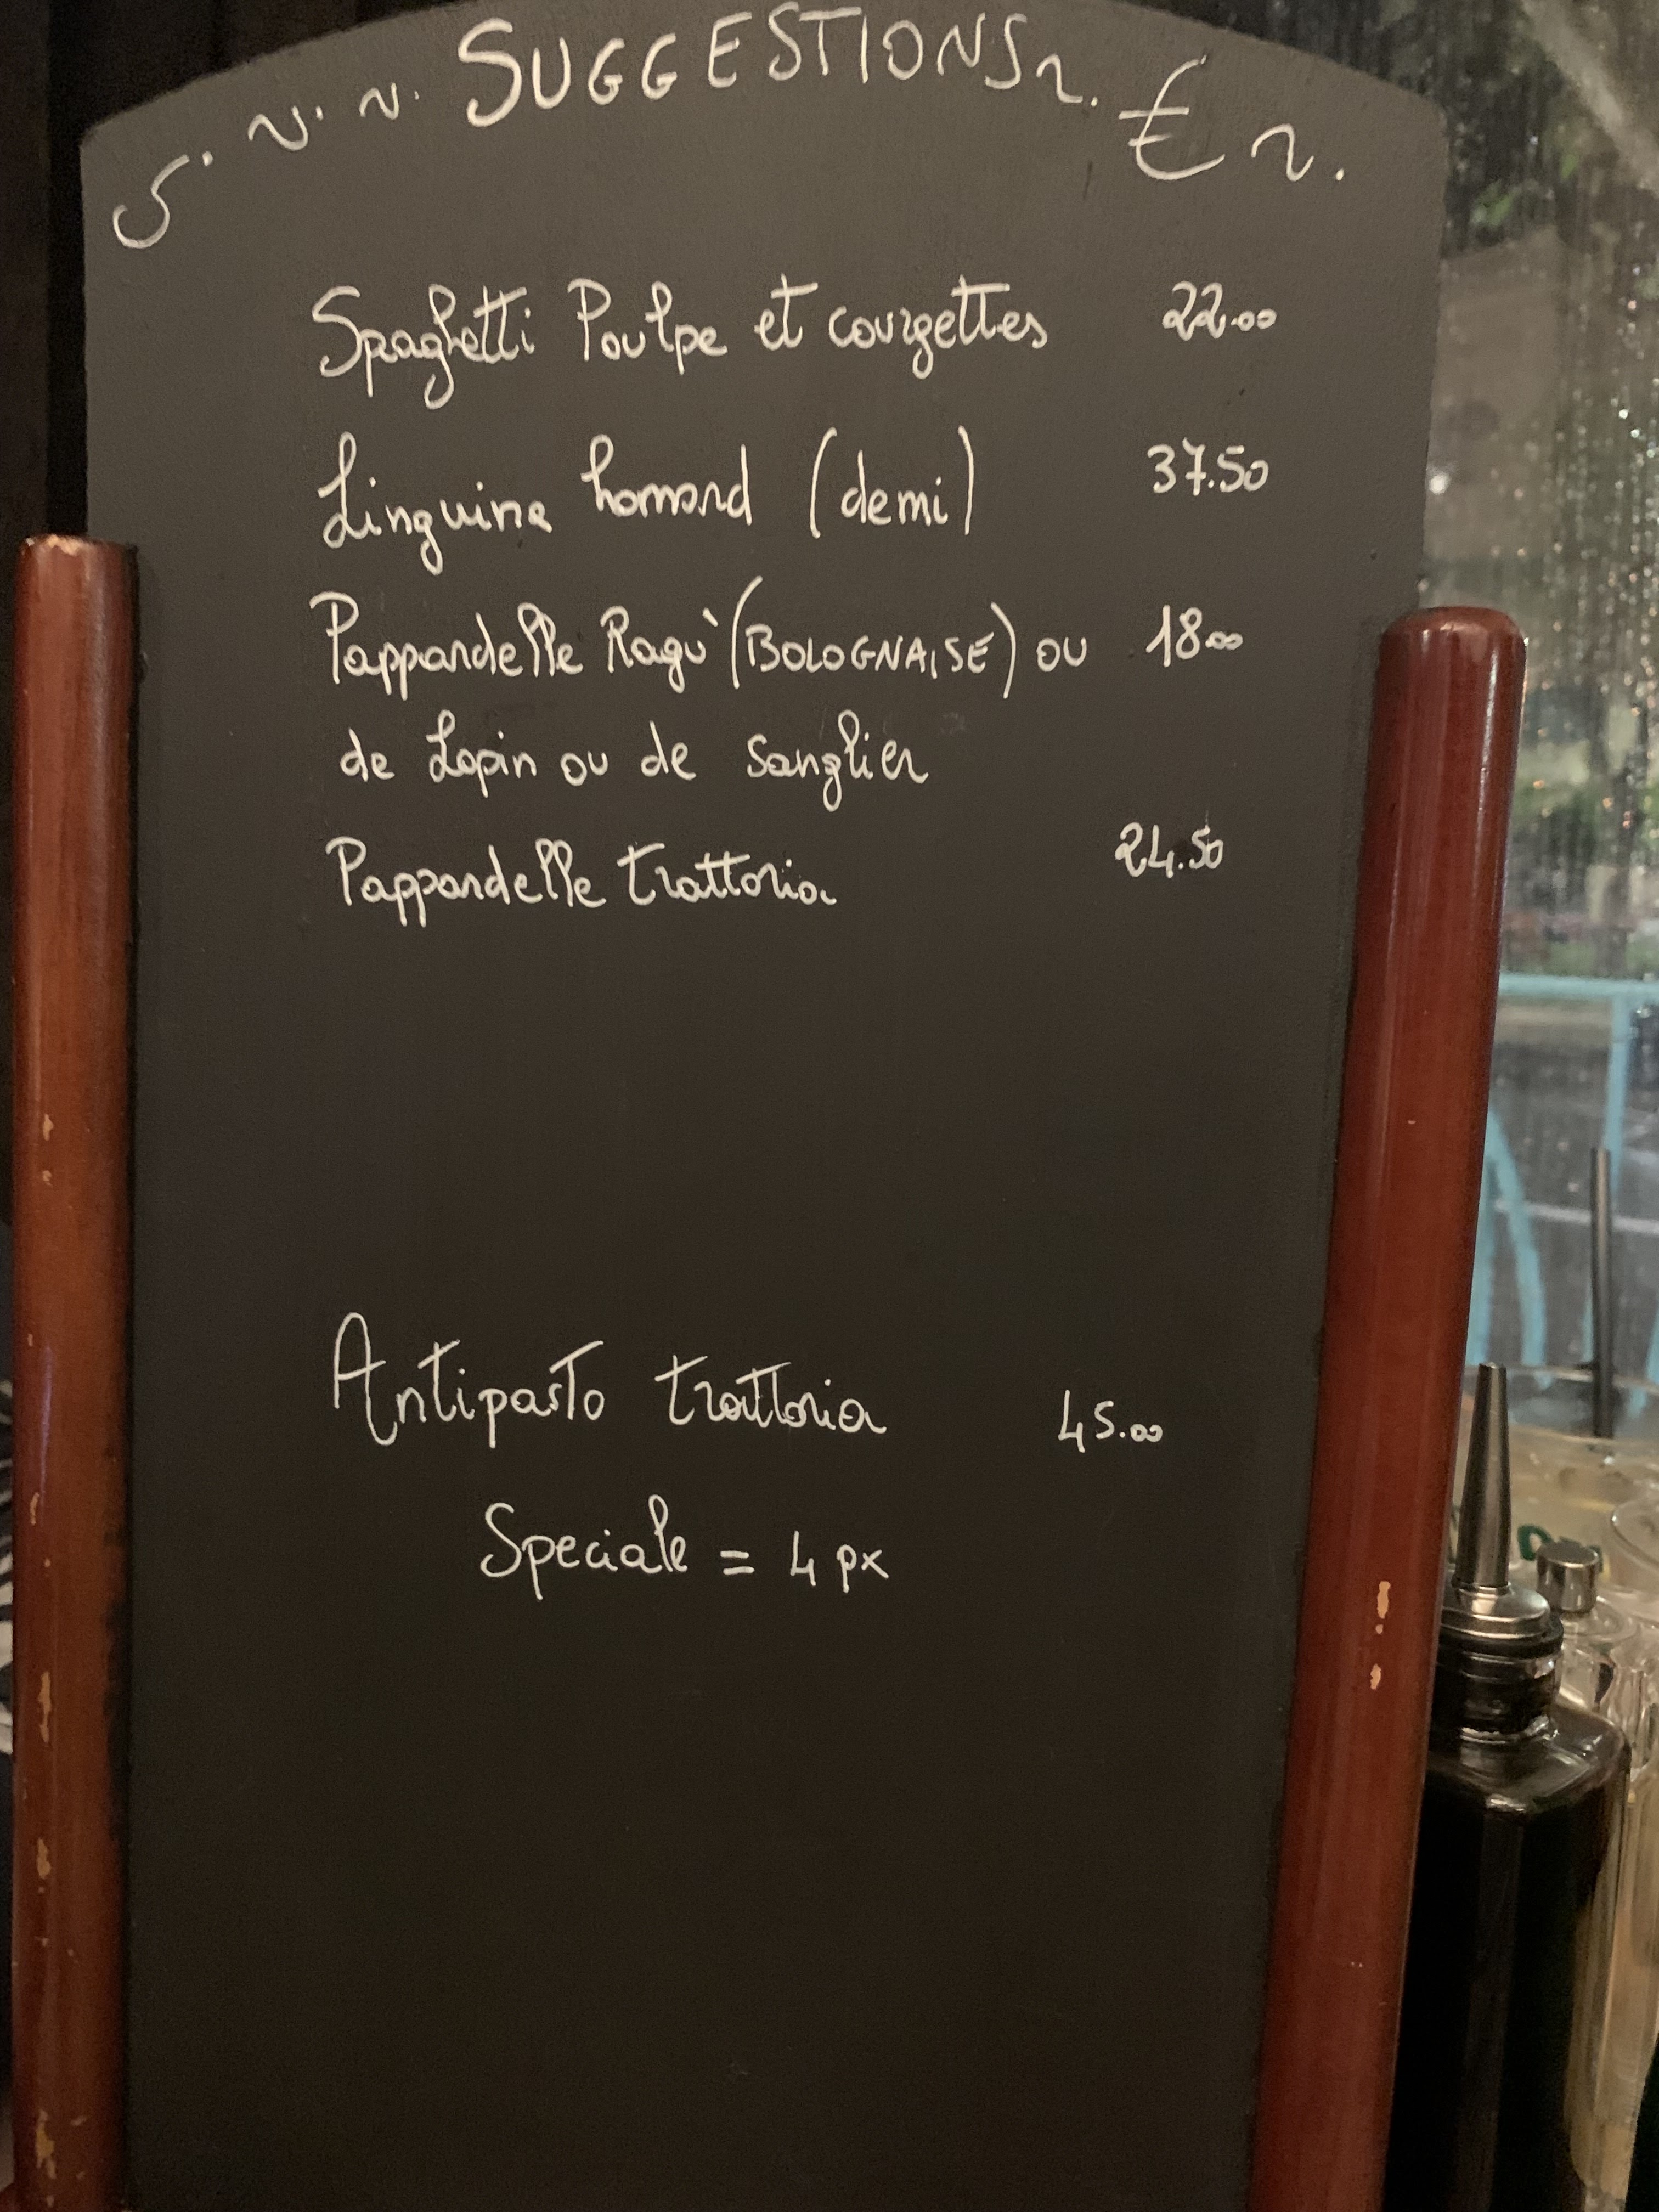 SUGGESTIONS €
Spaghetti Poulpe et courgettes 22.00
Linguine homard (demi) 37.50
Pappardelle Ragu' (BOLOGNAISE) ou 18.00
de Lapin ou de Sanglier
Pappardelle trattoria 24.50
Antipasto trattoria 45.00
Speciale = 4 px